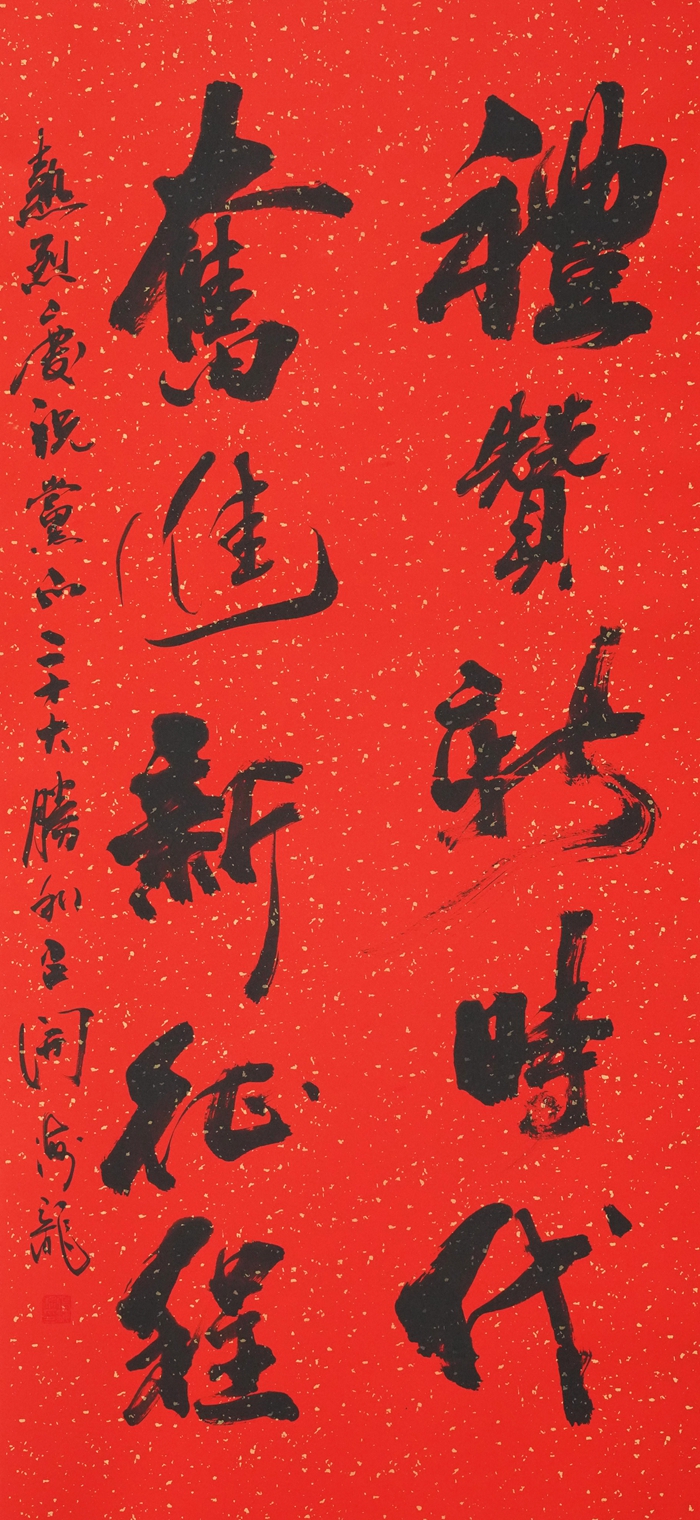 禮贊新時代
奮進新征程
熱烈慶祝黨的二十大勝利召開海龍